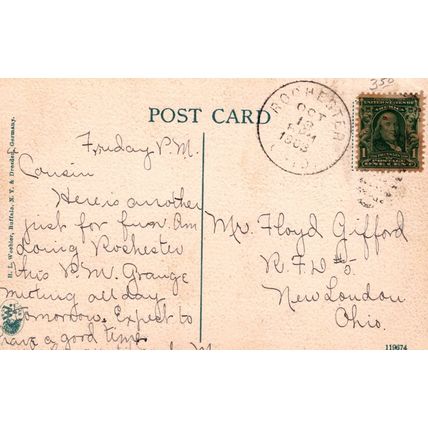 350
POST CARD
ROCHESTER
OCT
OHIO
UNITED STATES OF
POSTAGE
ONE CENT
Friday P.M.
Cousin
Here is another
just for fun. Am
doing Rochester
this P.M. Grange
meeting all day
tomorrow. Expect to
have a good time
Mr. Floyd Gifford
R.F.D #5.
New London
Ohio.
H. L. Woehler, Buffalo, N. Y. & Dresden, Germany.
119674